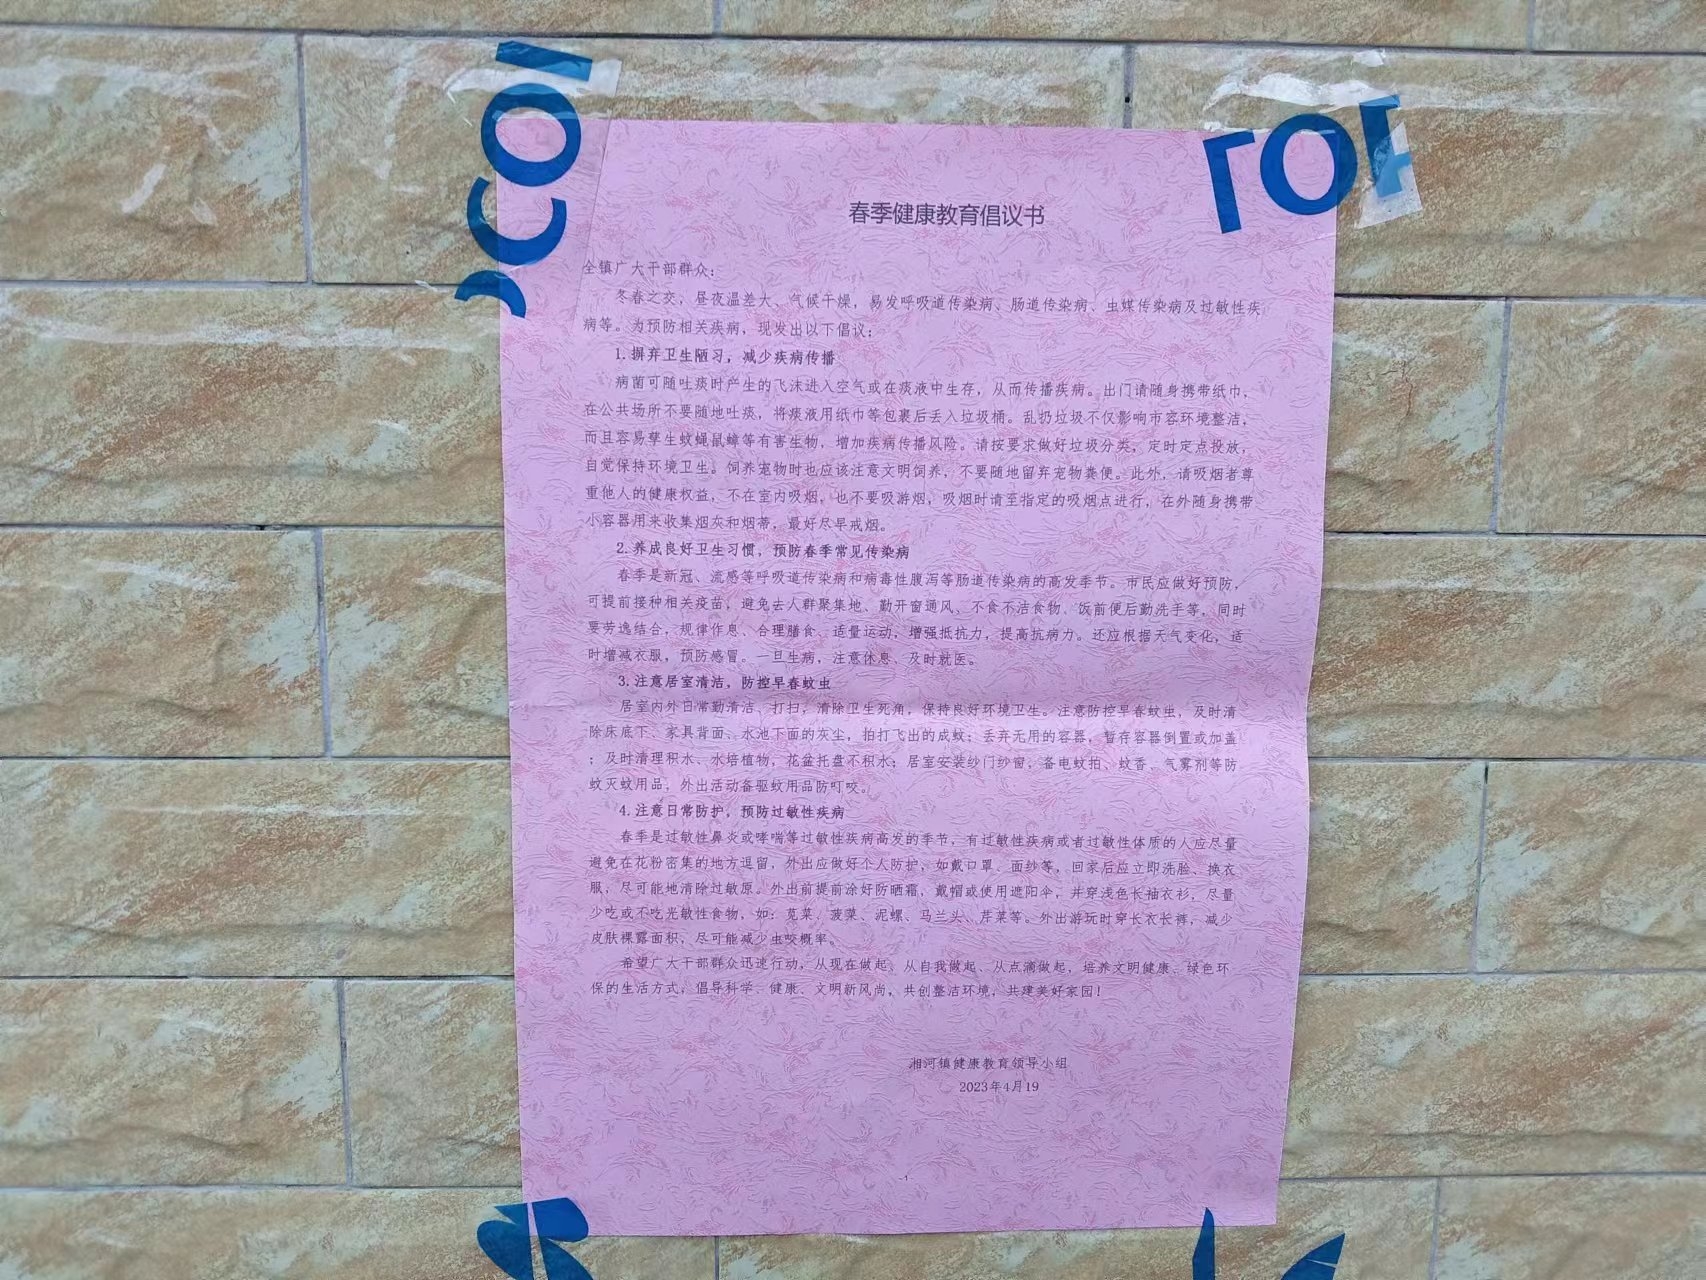 春季健康教育倡议书
全镇广大干部群众：
冬春之交，昼夜温差大、气候干燥，易发呼吸道传染病、肠道传染病、虫媒传染病及过敏性疾
病等。为预防相关疾病，现发出以下倡议：
1.摒弃卫生陋习，减少疾病传播
病菌可随吐痰时产生的飞沫进入空气或在痰液中生存，从而传播疾病。出门请随身携带纸巾，
在公共场所不要随地吐痰，将痰液用纸巾等包裹后丢入垃圾桶。乱扔垃圾不仅影响市容环境整洁，
而且容易孳生蚊蝇鼠蟑等有害生物，增加疾病传播风险。请按要求做好垃圾分类，定时定点投放，
自觉保持环境卫生。饲养宠物时也应该注意文明饲养，不要随地留弃宠物粪便。此外，请吸烟者尊
重他人的健康权益，不在室内吸烟，也不要吸游烟，吸烟时请至指定的吸烟点进行，在外随身携带
小容器用来收集烟灰和烟蒂，最好尽早戒烟。
2.养成良好卫生习惯，预防春季常见传染病
春季是新冠、流感等呼吸道传染病和病毒性腹泻等肠道传染病的高发季节。市民应做好预防，
可提前接种相关疫苗，避免去人群聚集地、勤开窗通风、不食不洁食物、饭前便后勤洗手等，同时
要劳逸结合，规律作息、合理膳食、适量运动，增强抵抗力，提高抗病力。还应根据天气变化，适
时增减衣服，预防感冒。一旦生病，注意休息、及时就医。
3.注意居室清洁，防控早春蚊虫
居室内外日常勤清洁、打扫，清除卫生死角，保持良好环境卫生。注意防控早春蚊虫，及时清
除床底下、家具背面、水池下面的灰尘，拍打飞出的成蚊；丢弃无用的容器，暂存容器倒置或加盖
；及时清理积水、水培植物，花盆托盘不积水；居室安装纱门纱窗，备电蚊拍、蚊香、气雾剂等防
蚊灭蚊用品，外出活动备驱蚊用品防叮咬。
4.注意日常防护，预防过敏性疾病
春季是过敏性鼻炎或哮喘等过敏性疾病高发的季节，有过敏性疾病或者过敏性体质的人应尽量
避免在花粉密集的地方逗留，外出应做好个人防护，如戴口罩、面纱等，回家后应立即洗脸、换衣
服，尽可能地清除过敏原。外出前提前涂好防晒霜，戴帽或使用遮阳伞，并穿浅色长袖衣衫，尽量
少吃或不吃光敏性食物，如：苋菜、菠菜、泥螺、马兰头、芹菜等。外出游玩时穿长衣长裤，减少
皮肤裸露面积，尽可能减少虫咬概率。
希望广大干部群众迅速行动，从现在做起、从自我做起、从点滴做起，培养文明健康、绿色环
保的生活方式，倡导科学、健康、文明新风尚，共创整洁环境，共建美好家园！
湘河镇健康教育领导小组
2023年4月19
1